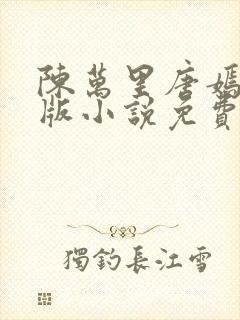 陳萬里唐嫣
版小說免費
獨釣長江雪